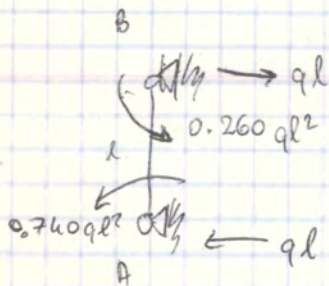 B
ql
0.260 ql²
l
0.740ql²
ql
A